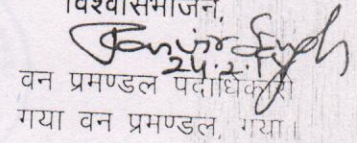 विश्वासभाजन,
24.2.14
वन प्रमण्डल पदाधिकारी
गया वन प्रमण्डल, गया।